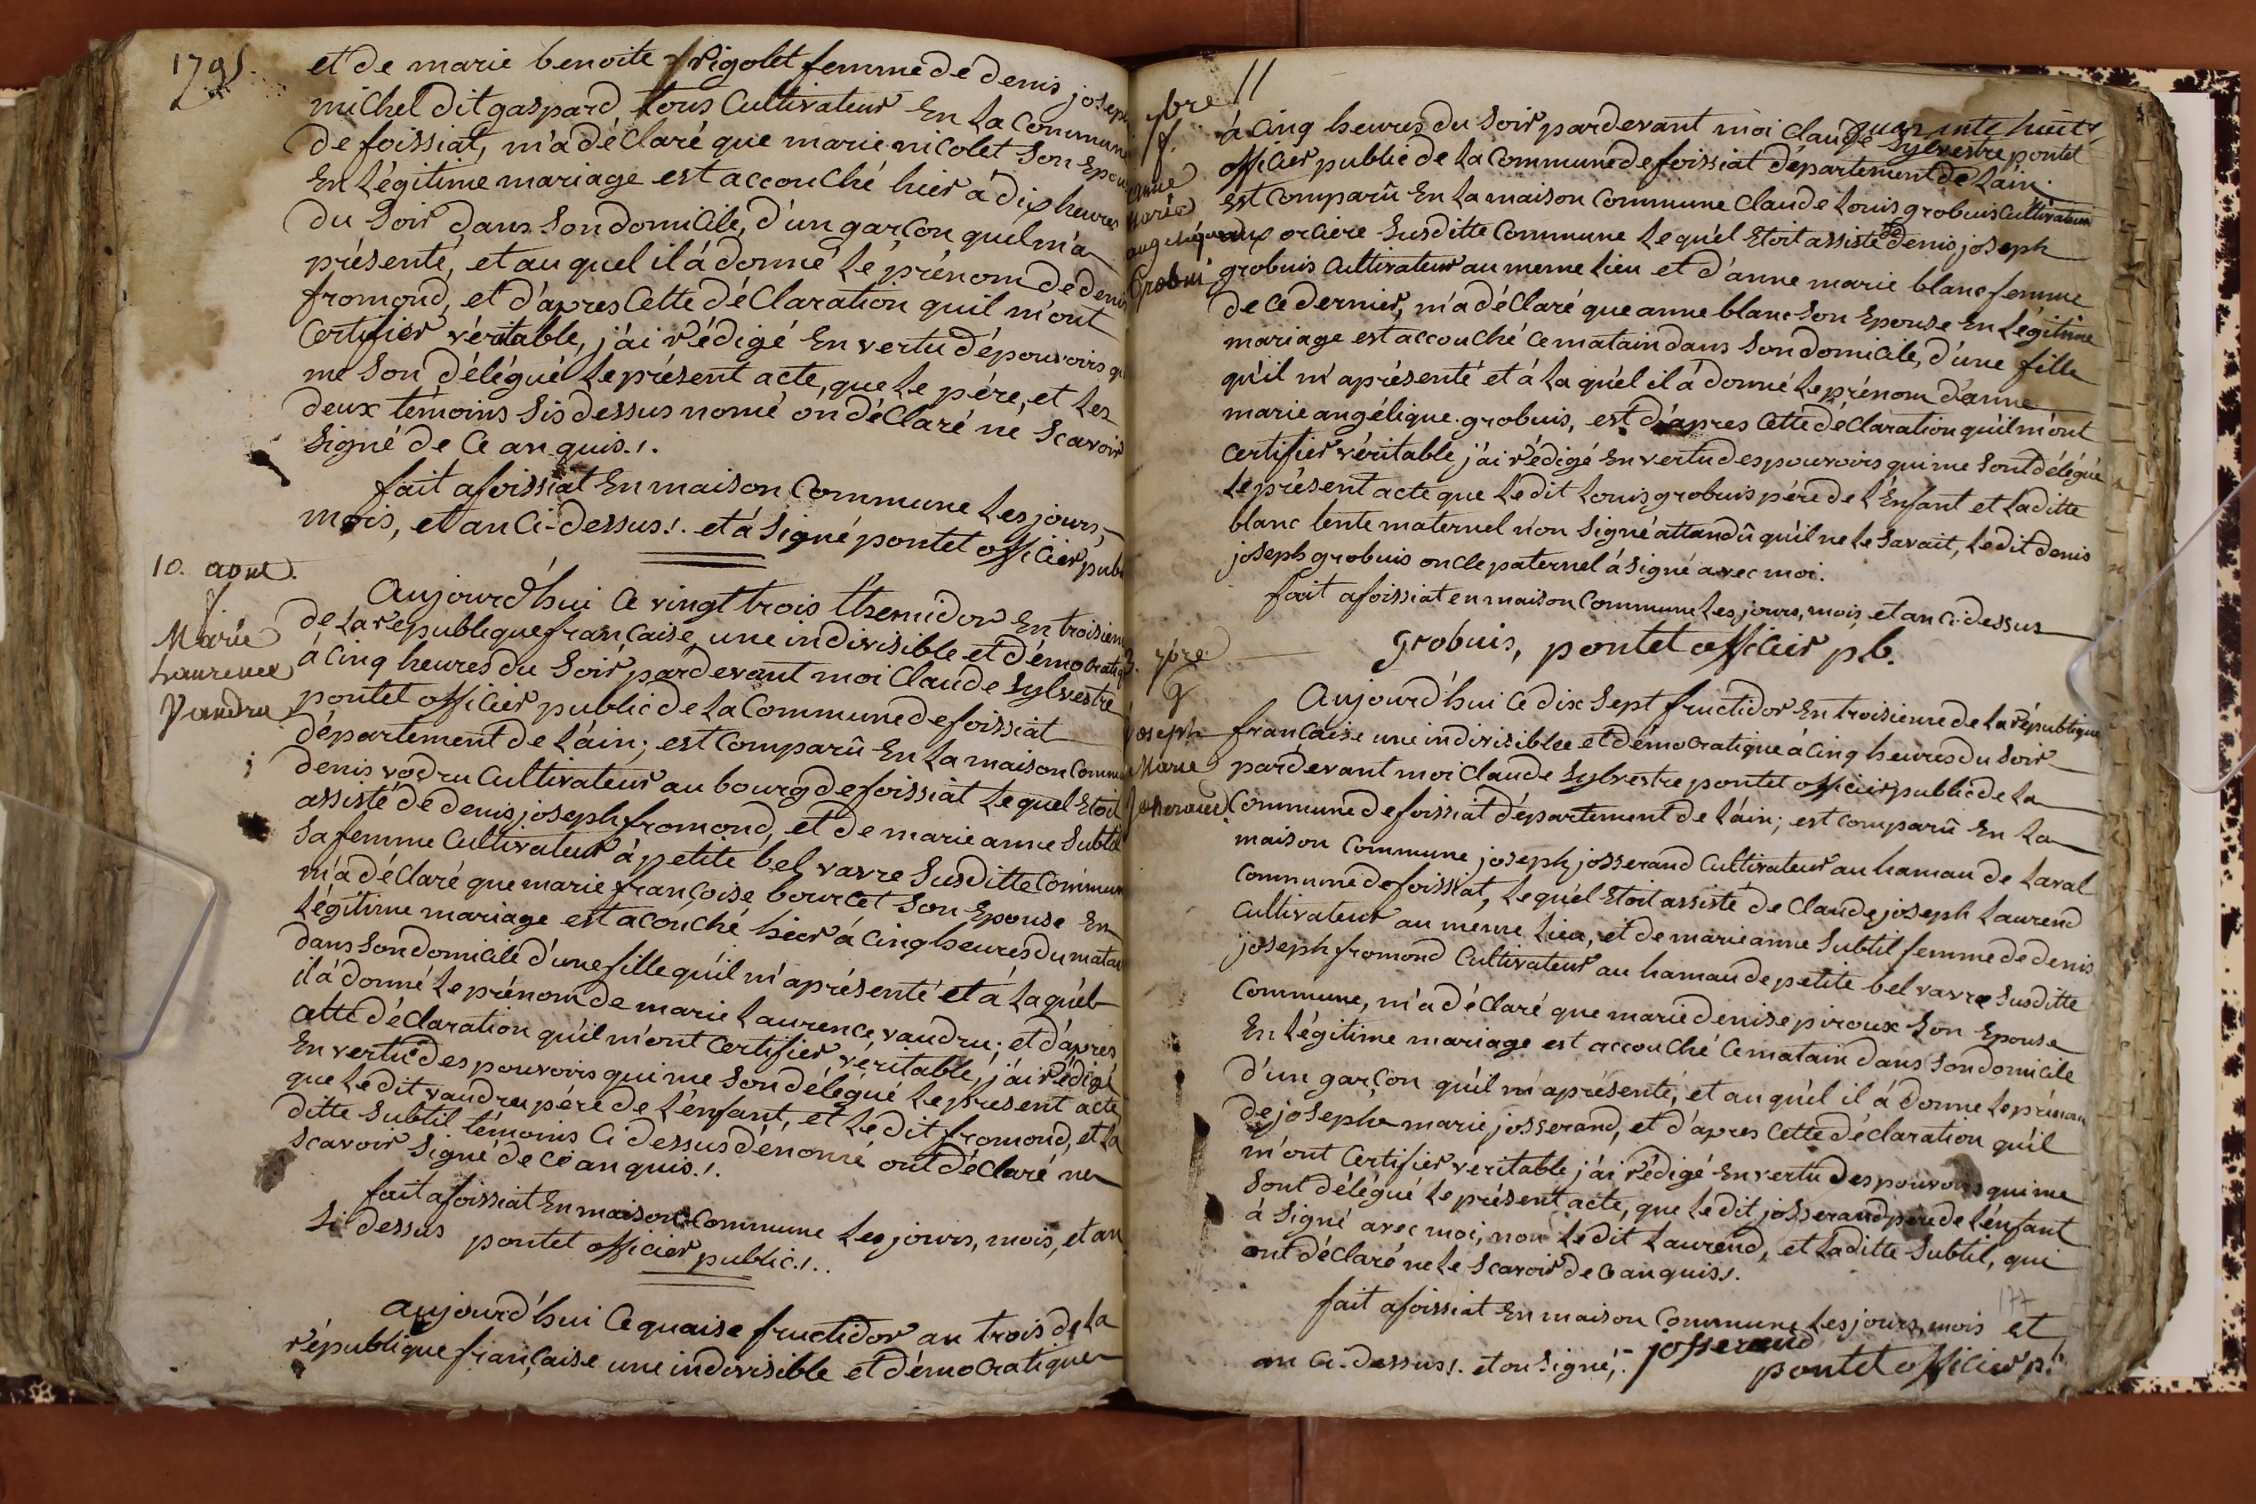 1795.
et de marie benoite frigolet femme de denis joseph
michel dit gaspard tous Cultivateur En La Commune
de foissiat, m'a déclaré que marie nicolet Son Epouse
En Légitime mariage est accouché hier à dix heures
du Soir dans Son domicile, d'un garçon quil m'a
présenté, et au quel il à donné Le prénom de denis
fromond, et d'apres Cette déclaration quil m'ont
Certifier véritable, j'ai rédigé En vertu dé pouvoirs qui
me Son délégué Le présent acte, que Le pére, et Les
deux témoins Sis dessus nomé ón déClaré né Scavoir
Signé de Ce anquis./.
fait a foissiat En maison Commune Les jours,
mois, et an Ci-dessus/. et à Signé pontet officier publ
10. aout.
f
Marie
Laurence
Vandru
Aujourd'hui Ce vingt trois thermidor En troisieme
de La république française, une indivisible et démocratique
à Cinq heures du Soir pardevant moi Claude Sylvestre
pontet officier public de La Commune de foissiat
département de L'ain; est Comparû En La maison Commune
denis vodru Cultivateur au bourg de foissiat Le quel Etoit
assisté de denis joseph fromond, et de marie anne Subtil
Sa femme Cultivateur à petite bel vavre Susditte Commune
m'a déclaré que marie françoise bourcet Son Epouse En
Légitime mariage est acouché hier á Cinq heures du matain
dans Son domicile d'une fille qu'il m'a présenté et á La quel
il à donné Le prénom de marie Laurence vaudru; et d'apres
Cette déClaration qu'il m'ont Certifier véritable, j'ai rédigé
En vertu des pouvoirs qui me Son délégué Le present acte
que Le dit vaudru pére de L'enfant, et Le dit fromond, et La
ditte Subtil témoins Ci dessus dénomé ont déClaré ne
Scavoir Signé de Ce anquis./.
fait a foissiat En maison Commune Les jours, mois, et an
Si dessus pontet officier public./..
aujourd'hui Ce quaise fructidor an trois de La
république française une indivisible et démocratique
11
7bre
f.
quarante huit
anne
Marie
angelique
Grobui
à Cinq heures du Soir pardevant moi Claude Sylvestre pontet
officier public de La Commune de foissiat département de L'ain
Est Comparû En La maison Commune Claude Louis grobuis Cultivateur
aux orciere Susditte Commune Le qu'el Etoit assisté de denis joseph
grobuis Cultivateur au meme Lieu et d'anne marie blanc femme
de Ce dernier, m'a déClaré que anne blanc Son Epouse En Légitime
mariage est accouché Ce matain dans Son domicile, d'une fille
qu'il m'a présenté et á La qu'el il á donné Le prénom d'anne
marie angélique grobuis, est d'apres Cette déClaration qu'il m'ont
Certifier véritable j'ai rédigé En vertu des pouvoirs qui me Sont délégué
Le présent acte que Le dit Louis grobuis pére de L'Enfant et La ditte
blanc tente maternel n'on Signé attandû qu'il ne Le Savait, Le dit denis
joseph grobuis oncle paternel à Signé avec moi.
fait a foissiat en maison Commune Les jours, mois et an Ci-dessus
grobuis, pontet officier pb.
3. 7bre
g
joseph
Marie
Josserand.
Aujourd'hui Ce dix Sept fructidor En troisieme de La république
française une indivisiblee et démocratique à Cinq heures du Soir
pardevant moi Claude Sylvestre pontet officier public de La
Commune de foissiat département de L'ain; est Comparû En La
maison Commune joseph josserand Cultivateur au hamau de Laval
Commune de foissiat, Le qu'el Etoit assisté de Claude joseph Laurend
Cultivateur au méme Lieu, et de marie anne Subtil femme de denis
joseph fromond Cultivateur au hamau de petite bel vavre Susditte
Commune, m'a déClaré que marie denise piroux Son Epouse
En Légitime mariage est accouché Ce matain dans Son domicile
d'un garçon qu'il m'a présenté, et au qu'el il á donne Le prénom
de joseph marie josserand, et d'apres Cette déclaration qu'il
m'ont Certifier véritable j'ai rédigé En vertu des pouvoirs qui me
Sont délégué Le présent acte, que Le dit josserand pere de L'énfant
à Signé avec moi, non Le dit Laurend, et La ditte Subtil, qui
ont déClaré ne Le Scavoir de Ce anquis/.
177
fait a foissiat En maison Commune Les jours, mois et
an Ci-dessus/. et on Signé,. josserand
pontet officier p.b